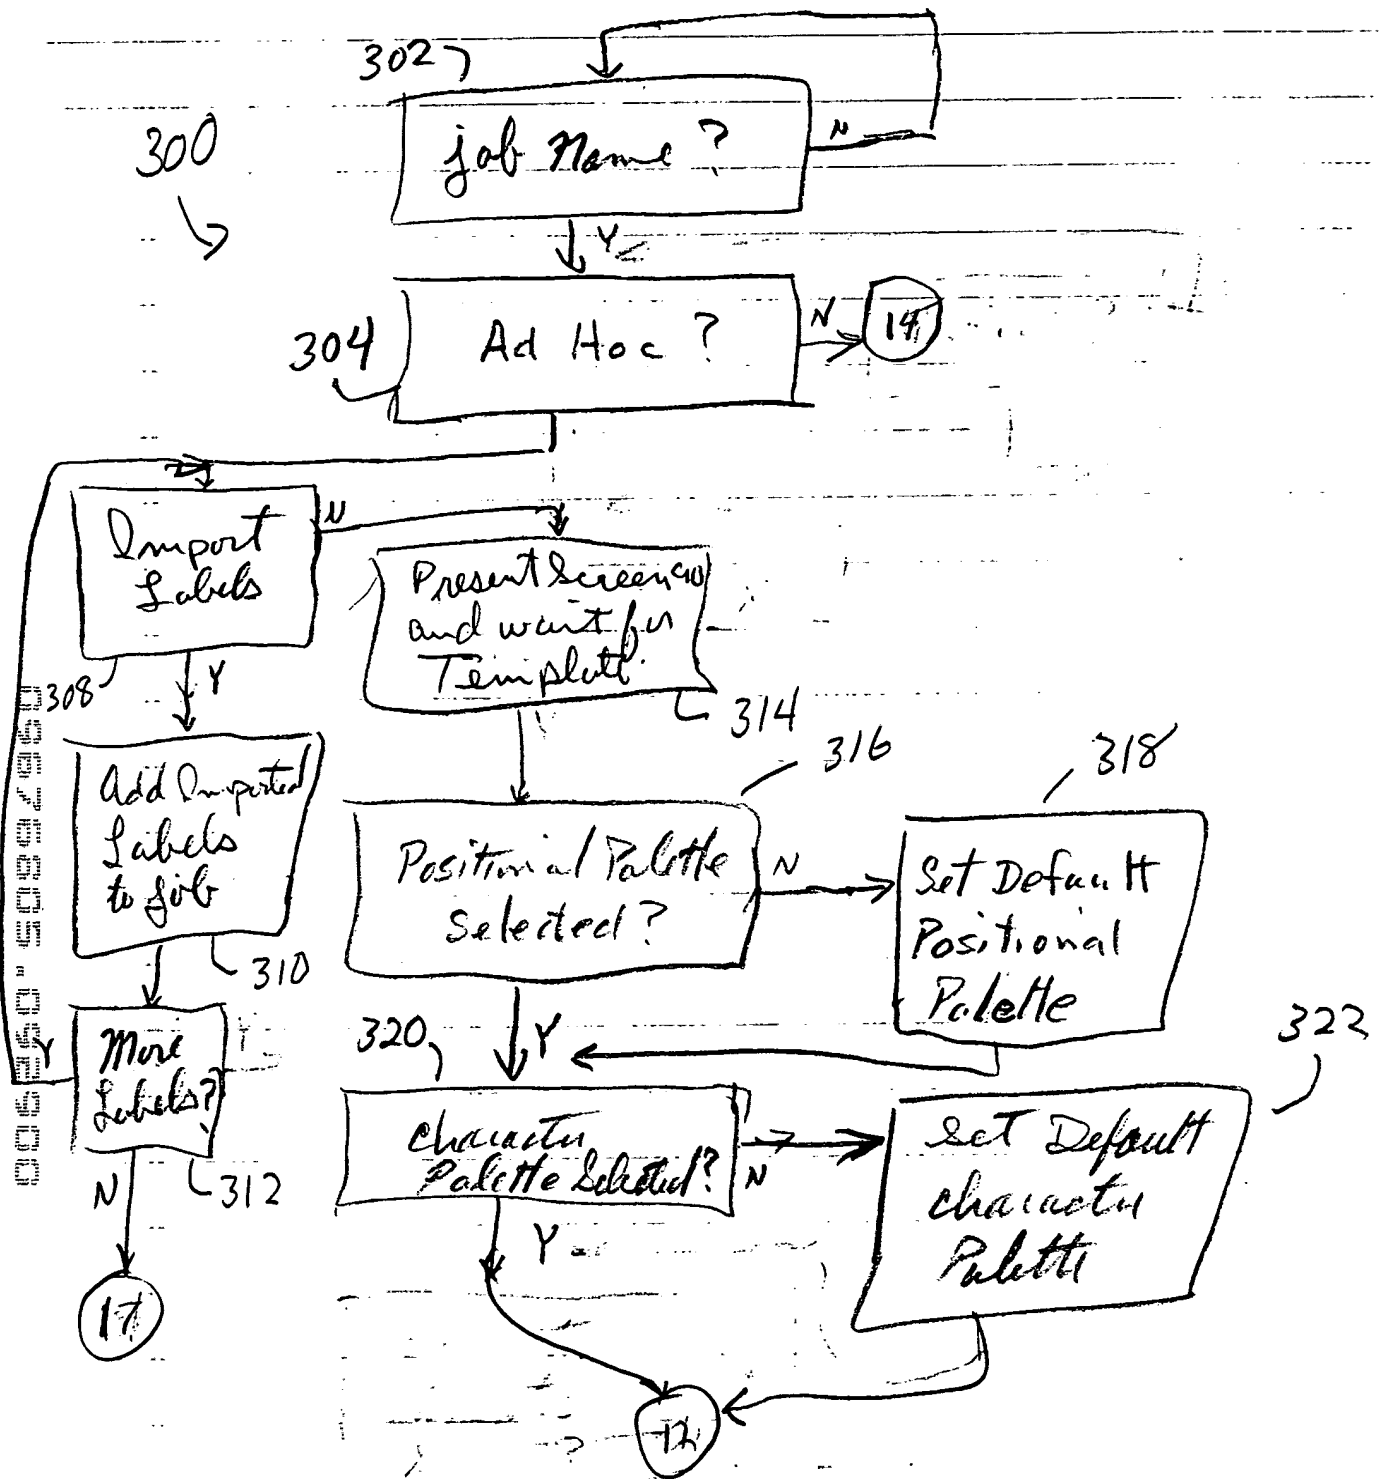 302
300
job Name ?
N
Y
304
Ad Hoc ?
N
14
Import
Labels
N
308
Y
Present Screen
and wait for
Template
314
Add Imported
Labels
to job
310
316
318
Positional Palette
Selected ?
N
Set Default
Positional
Palette
Y
More
Labels?
Y
312
N
17
320
Character
Palette Selected?
N
322
Set Default
character
Palette
Y
12